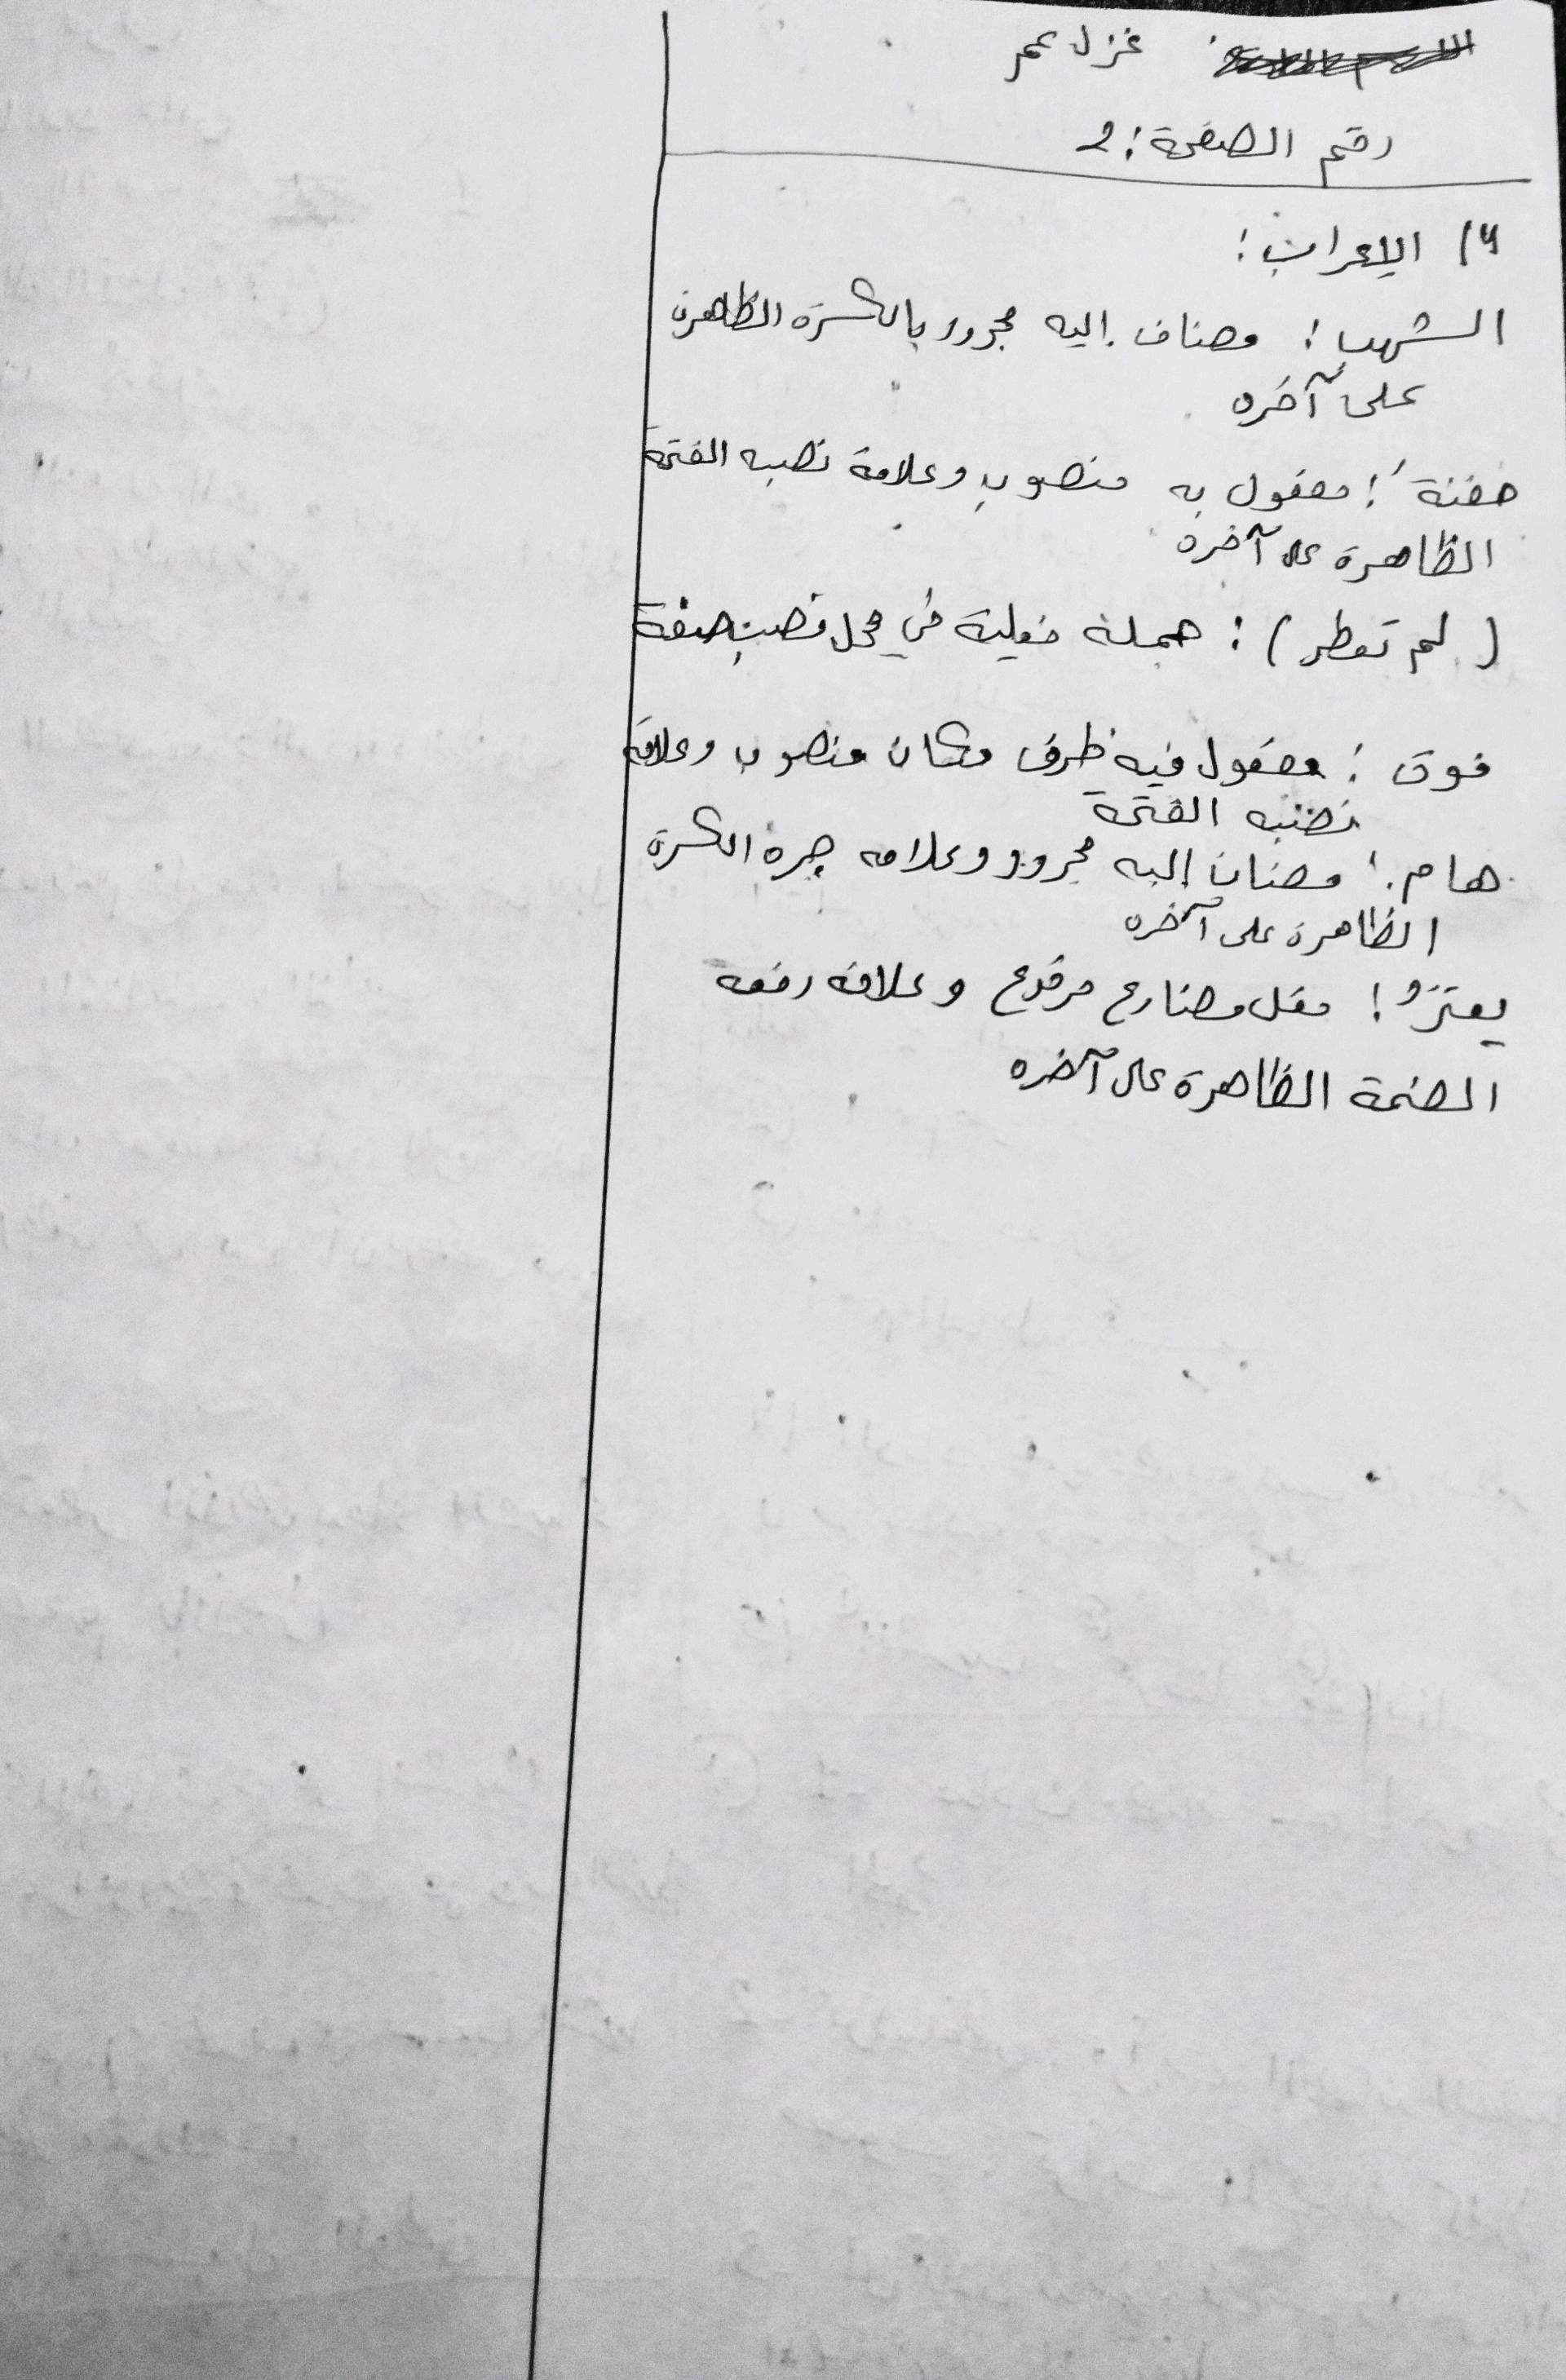 غزل عمر
رقم الصفحة: 2
4) الإعراب:
الشهب: مضاف إليه مجرور بالكسرة الظاهرة
على آخره
حفنةً: مفعول به منصوب وعلامة نصبه الفتحة
الظاهرة على آخره
(لم تعطر): جملة فعلية في محل نصب صفة
فوق: مفعول فيه ظرف مكان منصوب وعلامة
نصبه الفتحة
هام: مضاف إليه مجرور وعلامة جره الكسرة
الظاهرة على آخره
يعتزُّ: فعل مضارع مرفوع وعلامة رفعه
الضمة الظاهرة على آخره